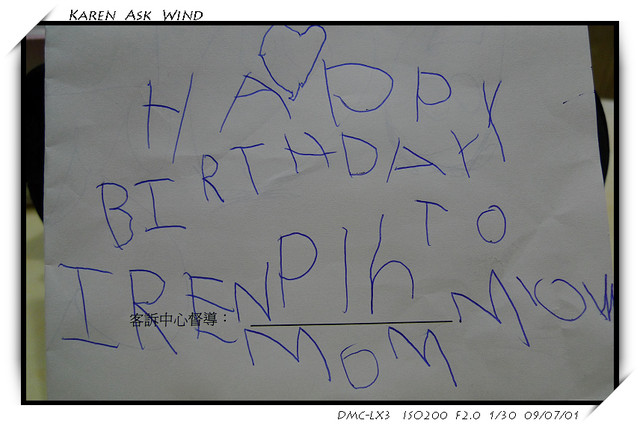 Karen Ask Wind
HAPPY
BIRTHDAY
TO
IREN PIh
客訴中心督導：
MOM MOM
DMC-LX3 ISO200 F2.0 1/30 09/07/01